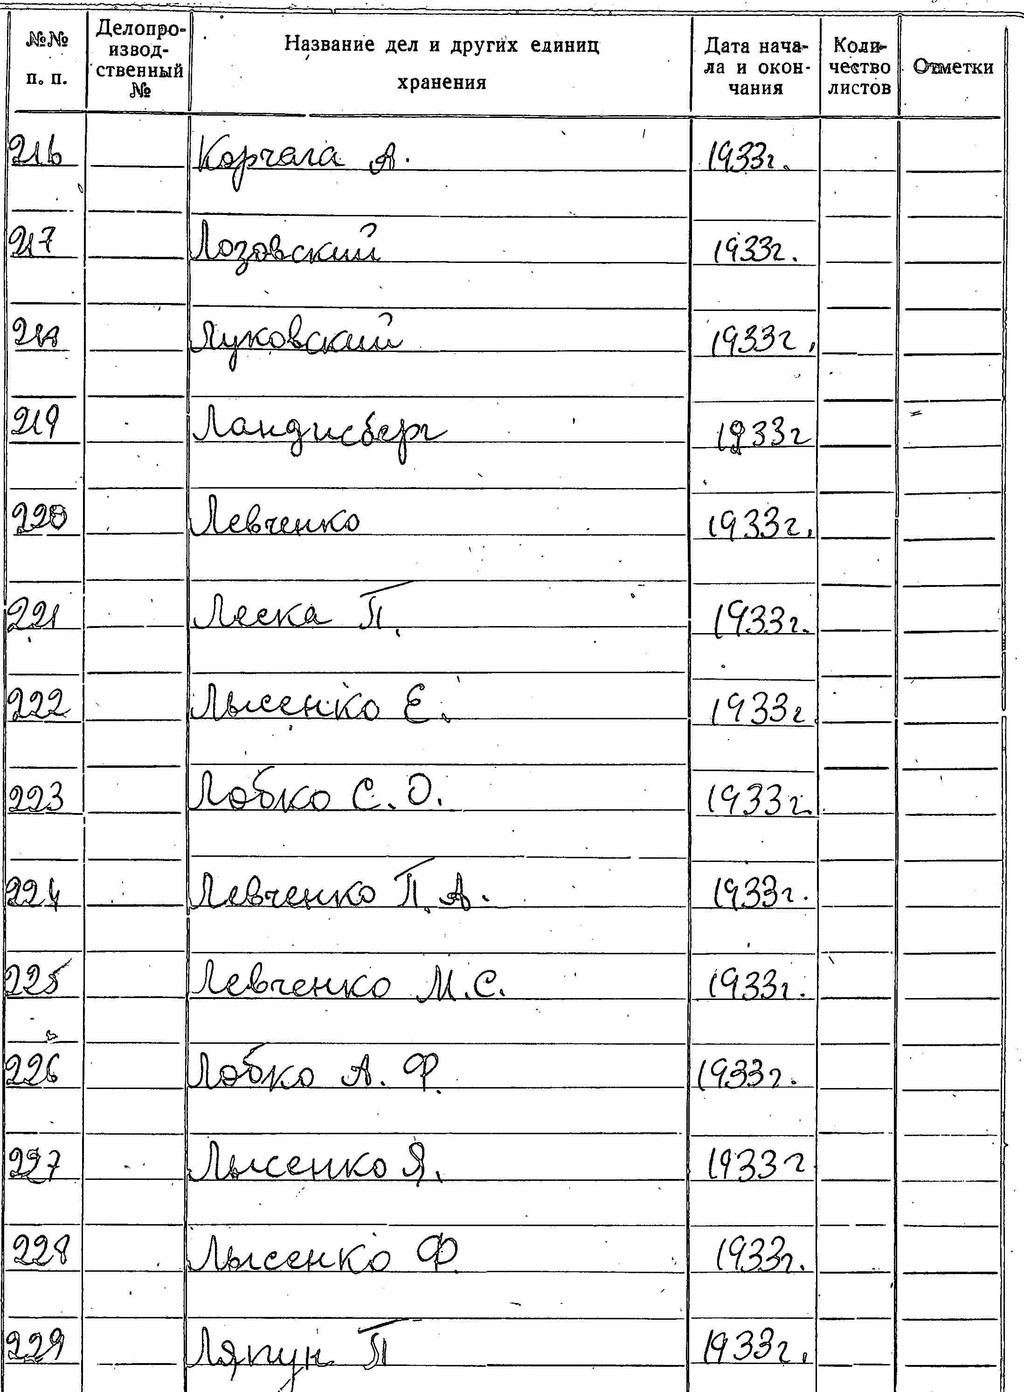 №№ п. п. Делопроизводственный № Название дел и других единиц хранения Дата начала и окончания Количество листов Отметки
216 Корчага А. 1933г.
217 Лозовский 1933г.
218 Луковский 1933г.
219 Ландисберг 1933г
220 Левченко 1933г.
221 Леска П. 1933г.
222 Лысенко Е. 1933г
223 Лобко С. О. 1933г.
224 Левченко П. А. 1933г.
225 Левченко М. С. 1933г.
226 Лобко А. Ф. 1933г.
227 Лысенко Я. 1933г
228 Лысенко Ф 1933г.
229 Ляпун П 1933г.